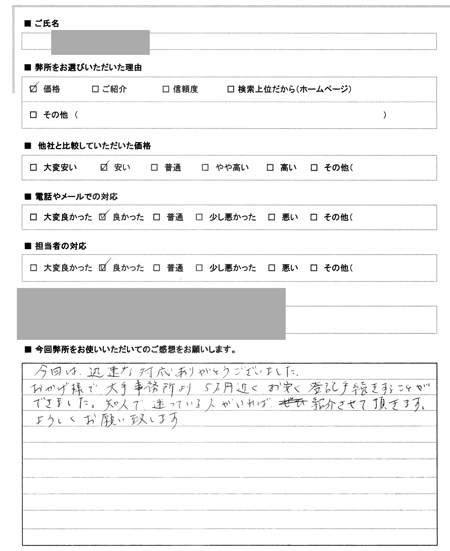 ■ ご氏名
■ 弊所をお選びいただいた理由
☑ 価格 □ ご紹介 □ 信頼度 □ 検索上位だから(ホームページ)
□ その他 ( )
■ 他社と比較していただいた価格
□ 大変安い ☑ 安い □ 普通 □ やや高い □ 高い □ その他(
■ 電話やメールでの対応
□ 大変良かった ☑ 良かった □ 普通 □ 少し悪かった □ 悪い □ その他(
■ 担当者の対応
□ 大変良かった ☑ 良かった □ 普通 □ 少し悪かった □ 悪い □ その他(
■ 今回弊所をお使いいただいてのご感想をお願いします。
今回は、迅速な対応ありがとうございました。
おかげ様で 大手事務所より 5万円近く お安く 登記手続きをすることが
できました。知人で 迷っている人がいれば、紹介させて頂きます。
よろしくお願い致します